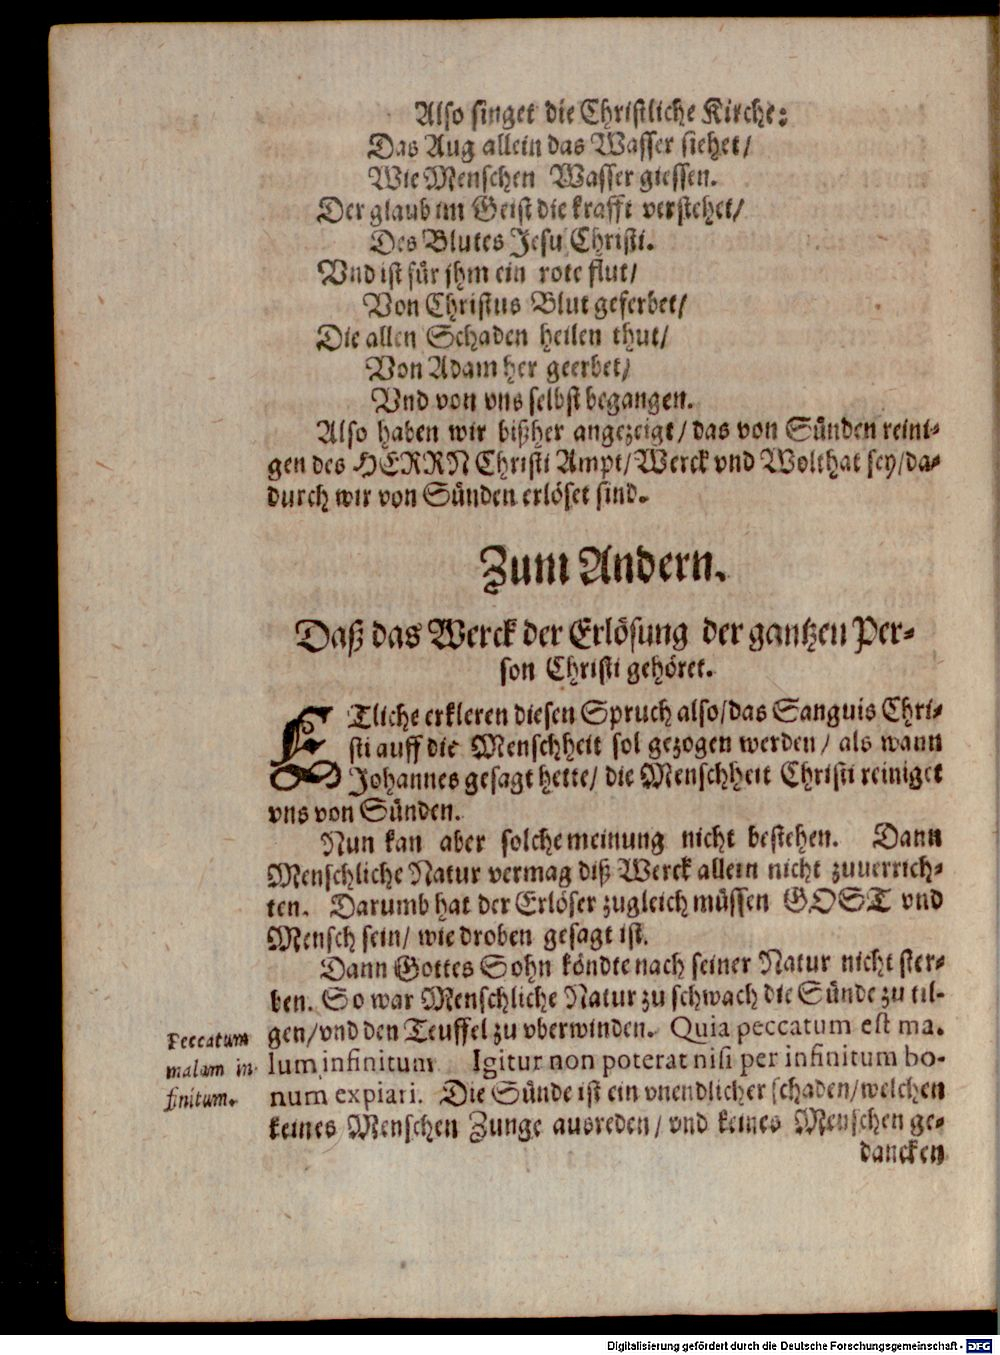 Also singet die Christliche Kirche:
Das Aug allein das Wasser siehet/
Wie Menschen Wasser giessen.
Der glaub im Geist die krafft verstehet/
Des Blutes Jesu Christi.
Vnd ist für jhm ein rote flut/
Von Christus Blut geferbet/
Die allen Schaden heilen thut/
Von Adam her geerbet/
Vnd von vns selbst begangen.
Also haben wir bißher angezeigt/das von Sünden reini-
gen des HERRN Christi Ampt/Werck vnd Wolthat sey/da-
durch wir von Sünden erlöset sind.
Zum Andern.
Daß das Werck der Erlösung der gantzen Per-
son Christi gehöret.
ETliche erkleren diesen Spruch also/das Sanguis Chri-
sti auff die Menschheit sol gezogen werden/ als wann
Johannes gesagt hette/ die Menschheit Christi reiniget
vns von Sünden.
Nun kan aber solche meinung nicht bestehen. Dann
Menschliche Natur vermag diß Werck allein nicht zuuerrich-
ten. Darumb hat der Erlöser zugleich müssen GOST vnd
Mensch sein/ wie droben gesagt ist.
Dann Gottes Sohn köndte nach seiner Natur nicht ster-
ben. So war Menschliche Natur zu schwach die Sünde zu til-
gen/vnd den Teuffel zu vberwinden. Quia peccatum est ma-
lum infinitum Igitur non poterat nisi per infinitum bo-
num expiari. Die Sünde ist ein vnendlicher schaden/welchen
keines Menschen Zunge ausreden/ vnd keines Menschen ge-
dancken
Peccatum
malum in
finitum.
Digitalisierung gefördert durch die Deutsche Forschungsgemeinschaft - DFG